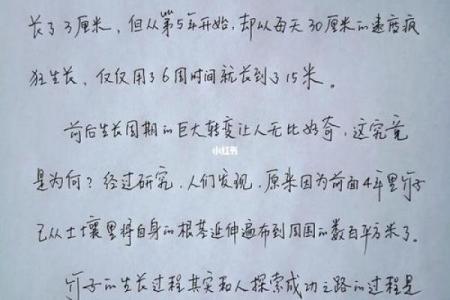 长了3厘米，但从第5年开始，却以每天30厘米的速度疯
狂生长，仅仅用了6周时间就长到了15米。
前后生长周期的巨大转变让人无比好奇，这究竟
小红书
是为何？经过研究，人们发现，原来因为前面4年里竹子
已从土壤里将自身的根基延伸遍布到周围的数百平方米了。
竹子的生长过程其实和人探索成功之路的过程是